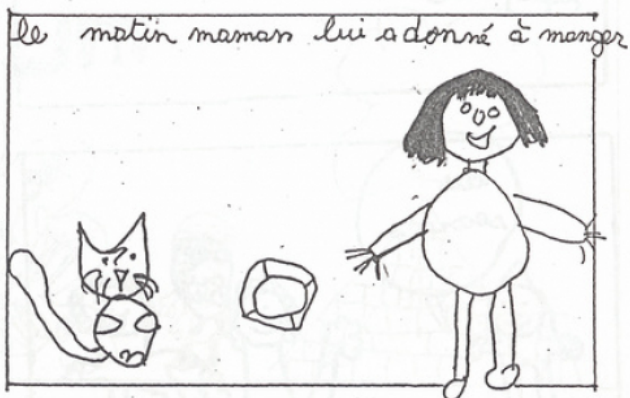 le matin maman lui a donné à manger